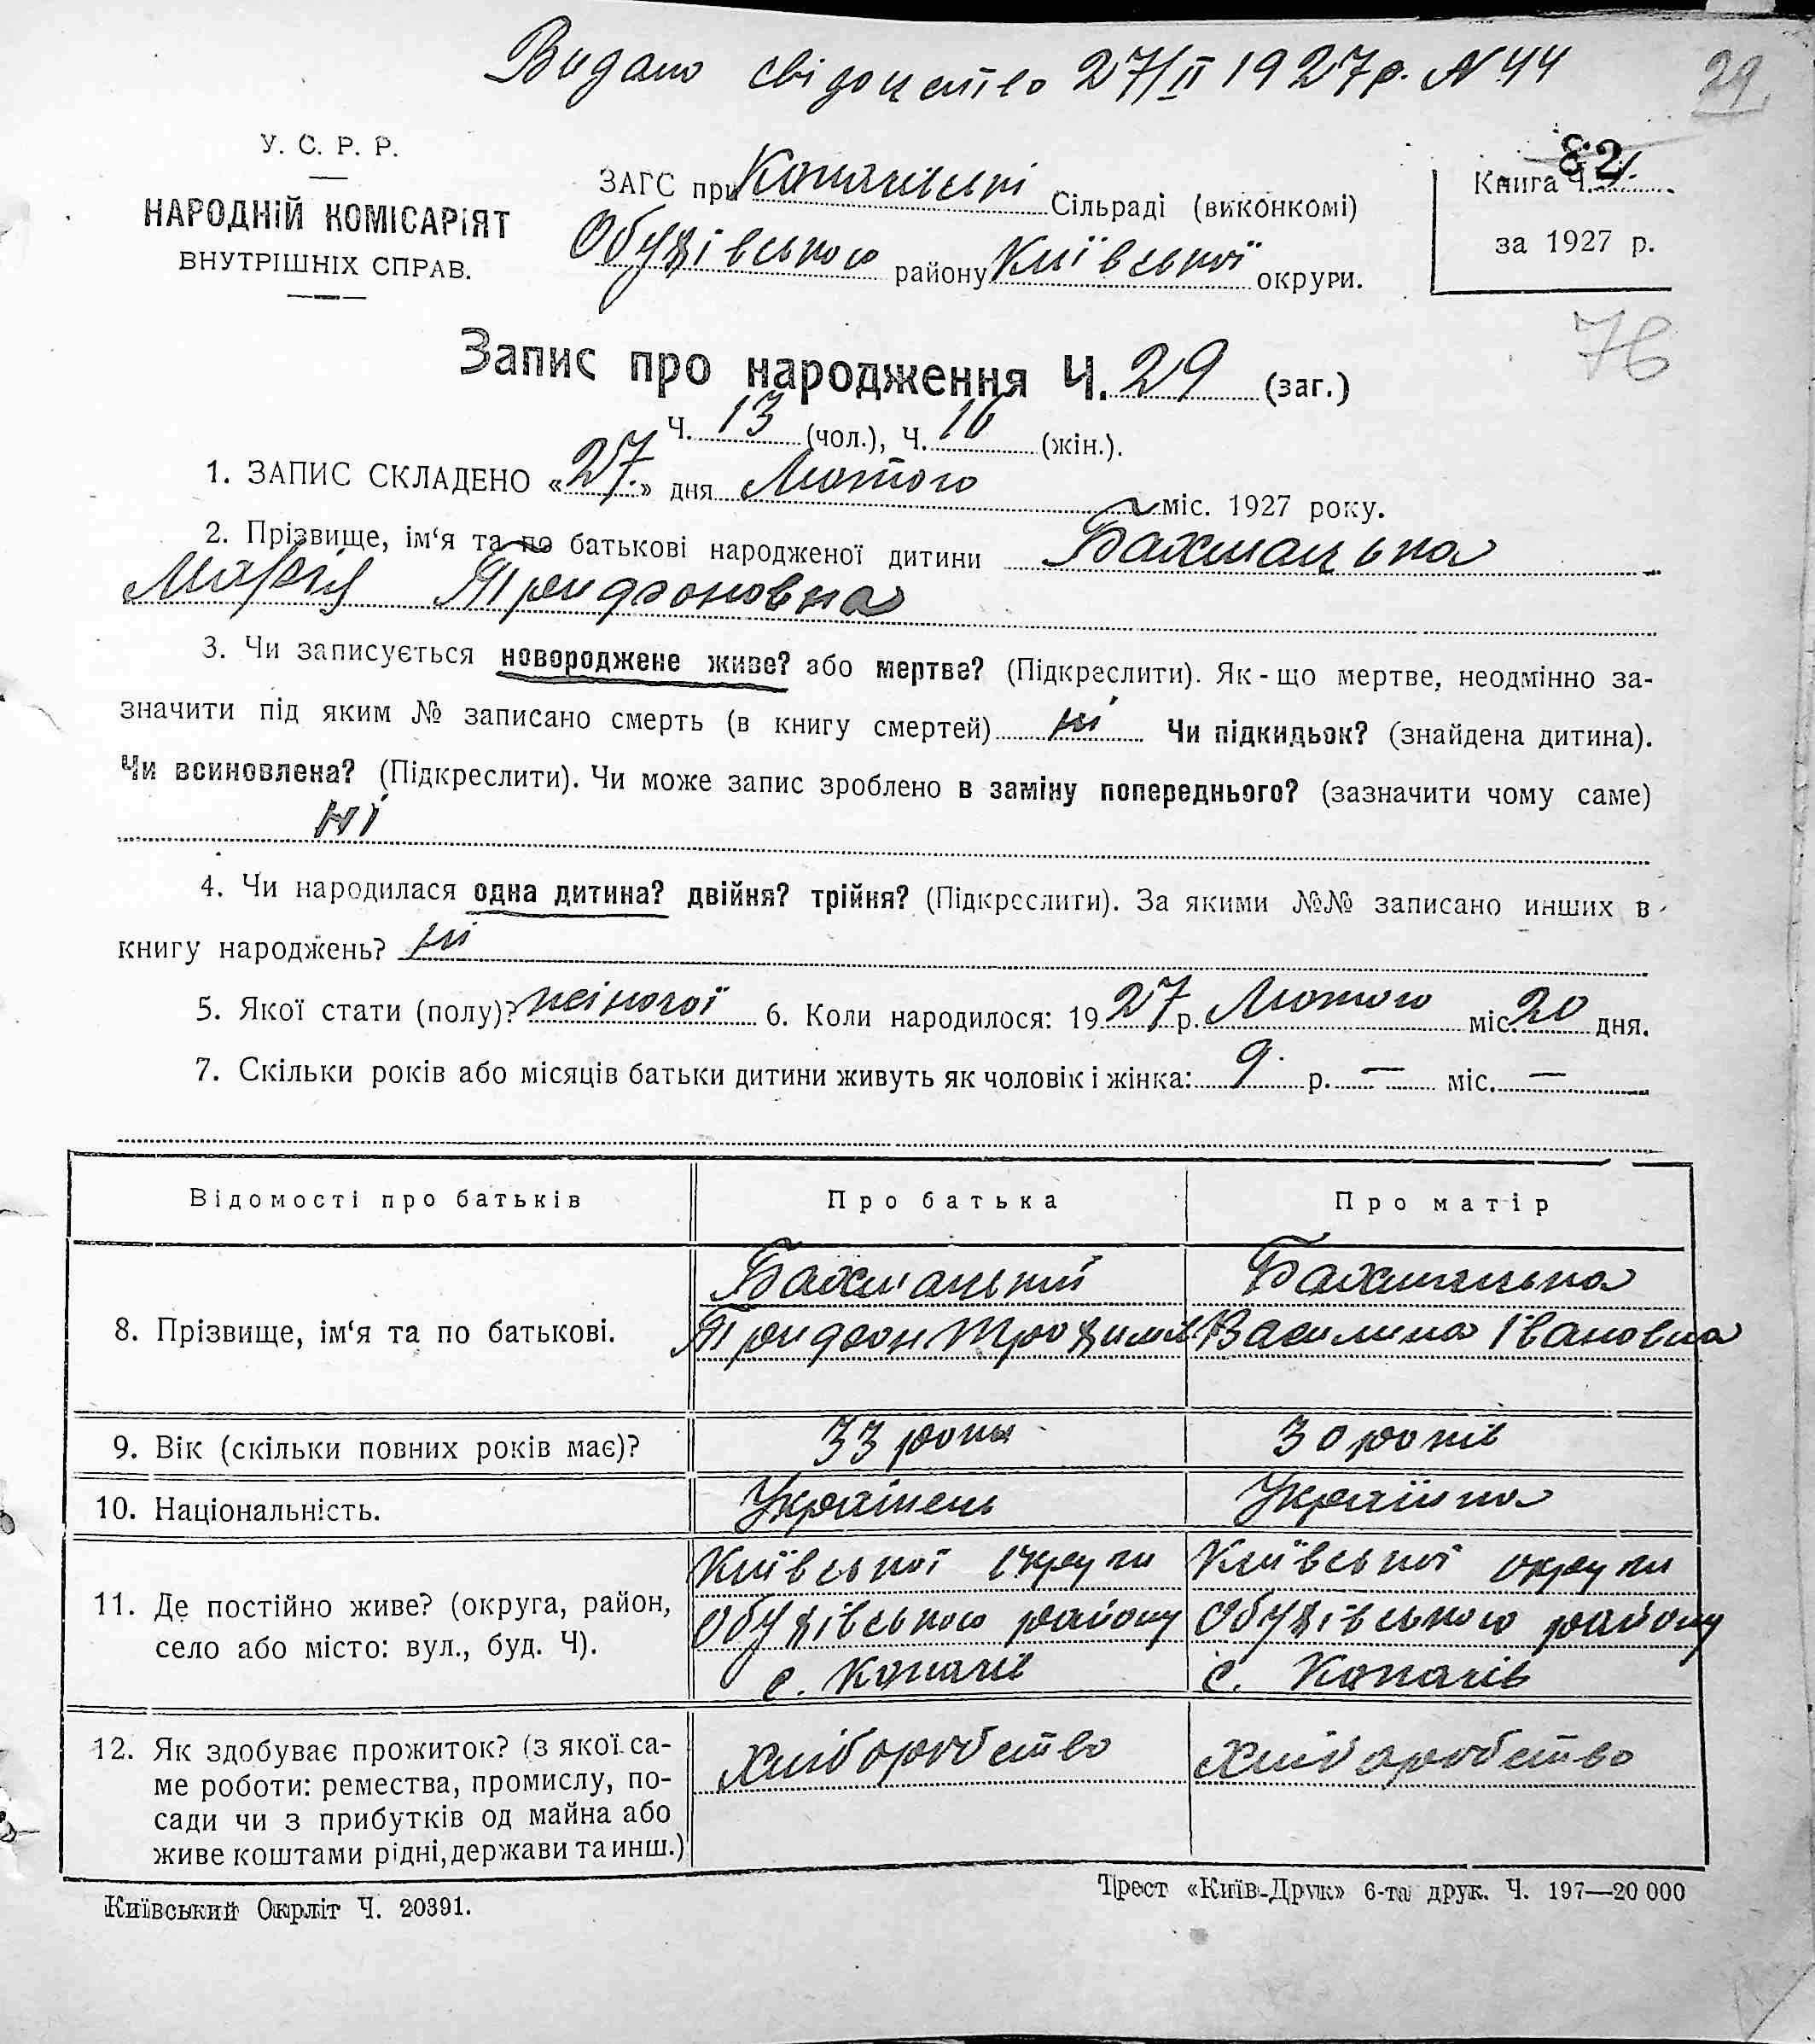 Видано свідоцтво 27/II 1927 р. N 44
29
У. С. Р. Р.
НАРОДНІЙ КОМІСАРІЯТ
ВНУТРІШНІХ СПРАВ.
ЗАГС при Копачівські Сільраді (виконкомі)
Обухівського району Київської округи.
82
Книга Ч.
за 1927 р.
76
Запис про народження Ч. 29 (заг.)
Ч. 13 (чол.), Ч. 16 (жін.).
1. ЗАПИС СКЛАДЕНО «27» дня Лютого міс. 1927 року.
2. Прізвище, ім‘я та по батькові народженої дитини Бахмацька
Марія Трифоновна
3. Чи записується новороджене живе? або мертве? (Підкреслити). Як-що мертве, неодмінно за-
значити під яким № записано смерть (в книгу смертей) ні Чи підкидьок? (знайдена дитина).
Чи всиновлена? (Підкреслити). Чи може запис зроблено в заміну попереднього? (зазначити чому саме)
ні
4. Чи народилася одна дитина? двійня? трійня? (Підкреслити). За якими №№ записано инших в
книгу народжень? ні
5. Якої стати (полу)? жіночої 6. Коли народилося: 1927 р. Лютого міс. 20 дня.
7. Скільки років або місяців батьки дитини живуть як чоловік і жінка: 9 р. — міс. —
Відомості про батьків Про батька Про матір
8. Прізвище, ім‘я та по батькові.
Бахмацький Бахмацька
Трифон Трохимів Василина Івановна
9. Вік (скільки повних років має)? 33 роки 30 років
10. Національність. Українець Українка
11. Де постійно живе? (округа, район,
село або місто: вул., буд. Ч).
Київської округи Київської округи
Обухівського району Обухівського району
с. Копачів с. Копачів
12. Як здобуває прожиток? (з якої са-
ме роботи: ремества, промислу, по-
сади чи з прибутків од майна або
живе коштами рідні, держави та инш.)
хліборобство хліборобство
Київський Окрліт Ч. 20391.
Трест «Київ-Друк» 6-та друк. Ч. 197—20 000